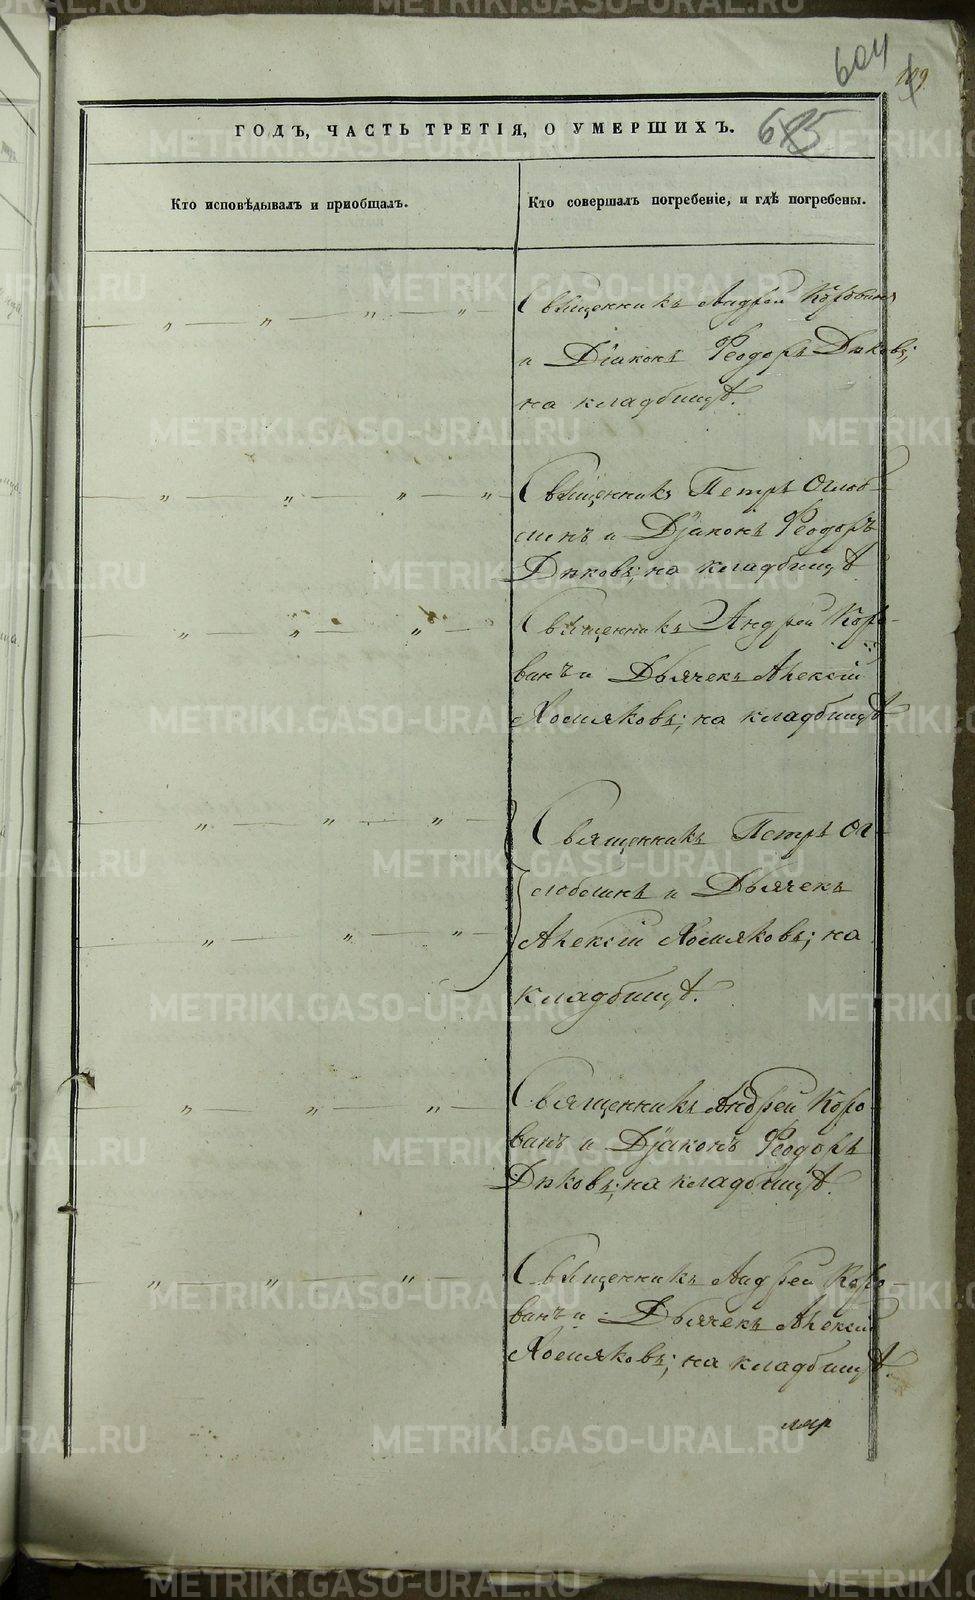 604
109
ГОДЪ, ЧАСТЬ ТРЕТІЯ, О УМЕРШИХЪ.
Кто исповѣдывалъ и пріобщалъ.
Кто совершалъ погребеніе, и гдѣ погребены.
Священникъ Андрей Корованъ
и Діаконъ Ѳеодоръ Дьковъ;
на кладбищѣ.
Священникъ Петръ Оглоб-
линъ и Діаконъ Ѳеодоръ
Дьковъ; на кладбищѣ
Священникъ Андрей Коро-
ванъ и Дьячекъ Алексій
Хомяковъ; на кладбищѣ.
Священникъ Петръ Ог-
лоблинъ и Дьячекъ
Алексій Хомяковъ; на
кладбищѣ.
Священникъ Андрей Коро-
ванъ и Діаконъ Ѳеодоръ
Дьковъ; на кладбищѣ.
Священникъ Андрей Коро-
ванъ и Дьячекъ Алексій
Хомяковъ; на кладбищѣ.
METRIKI.GASO-URAL.RU